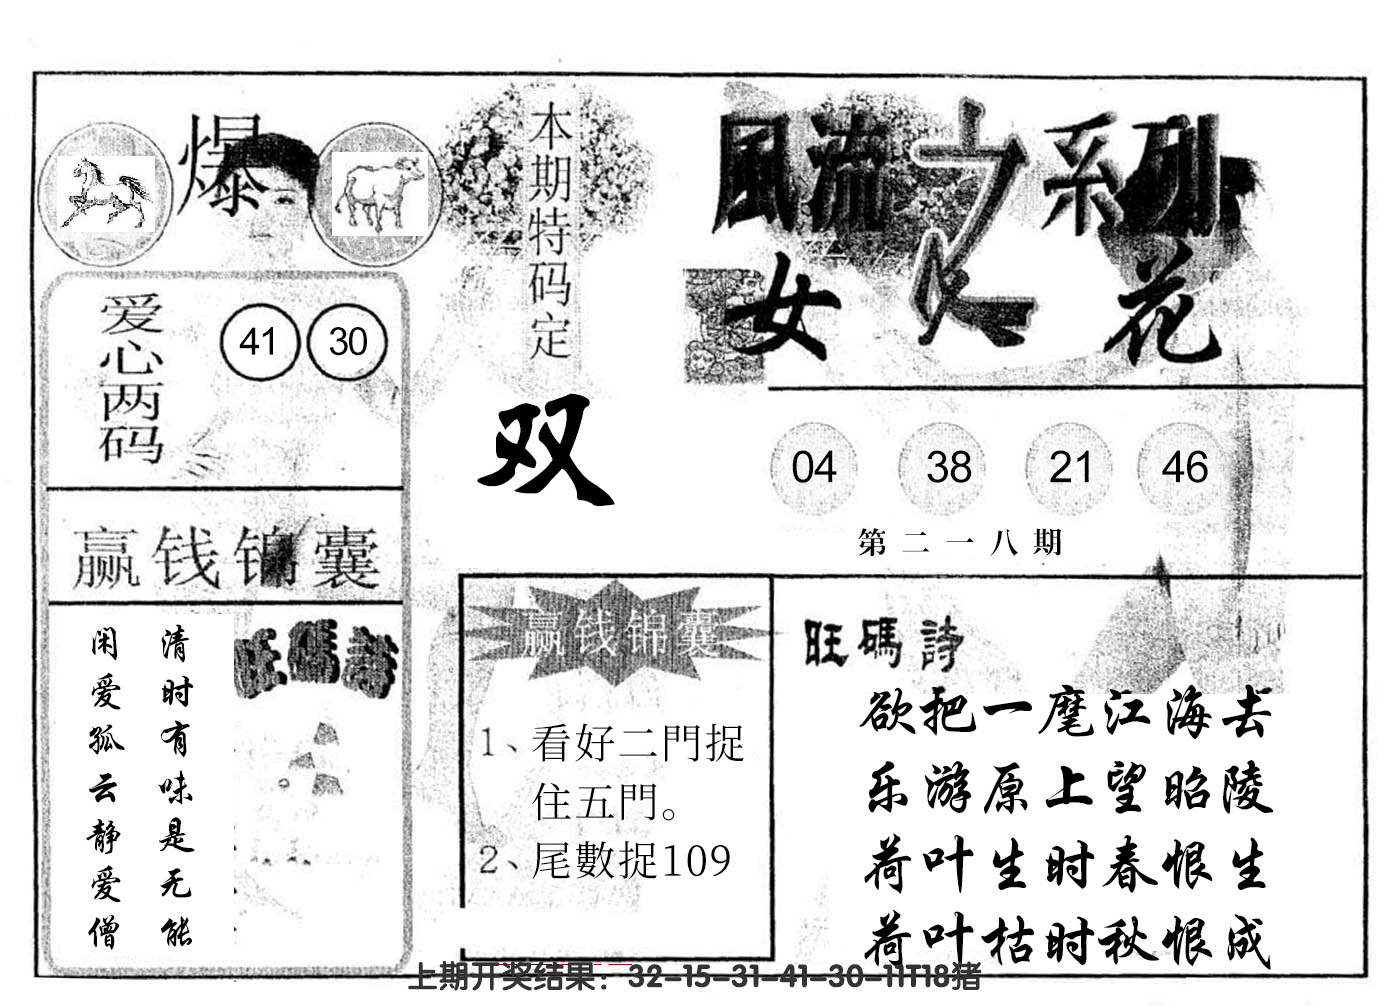 爆
爱心两码
41 30
赢钱锦囊
清时有味是无能
闲爱孤云静爱僧
旺碼詩
本期特码定
双
赢钱锦囊
1、看好二門捉
住五門。
2、尾數捉109
風流之系列
女人花
04 38 21 46
第二一八期
旺碼詩
欲把一麾江海去
乐游原上望昭陵
荷叶生时春恨生
荷叶枯时秋恨成
上期开奖结果：32-15-31-41-30-11T18猪